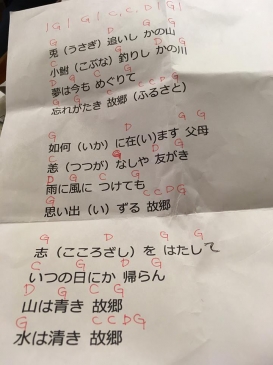 |G|G|C,C,D|G|
G D G G
兎（うさぎ）追いし かの山
C G D G
小鮒（こぶな）釣りし かの川
D G C G
夢は今も めぐりて
G C C D G
忘れがたき 故郷（ふるさと）
G D G G
如何（いか）に在(い)ます 父母
C G D G
恙（つつが）なしや 友がき
D G C G
雨に風に つけても
G C C D G
思い出（い）ずる 故郷
G D G G
志（こころざし）を はたして
C G D G
いつの日にか 帰らん
D G C G
山は青き 故郷
G C C D G
水は清き 故郷